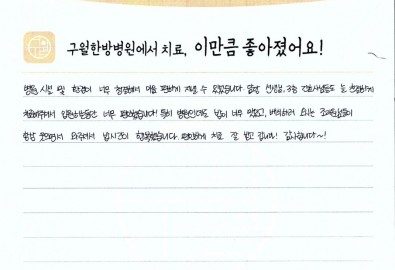 구월한방병원에서 치료, 이만큼 좋아졌어요!
병원 시설 및 환경이 너무 청결해서 매우 편하게 지낼 수 있었습니다 담당 선생님, 3층 간호사님들도 늘 친절하게
치료해주셔서 입원하는동안 너무 편했습니다! 특히 병원인데도 밥이 너무 맛있고, 배식하러 오시는 조리원님들이
항상 웃으면서 와주셔서 밥시간이 행복했습니다. 편안하게 치료 잘 받고 갑니다! 감사합니다~!